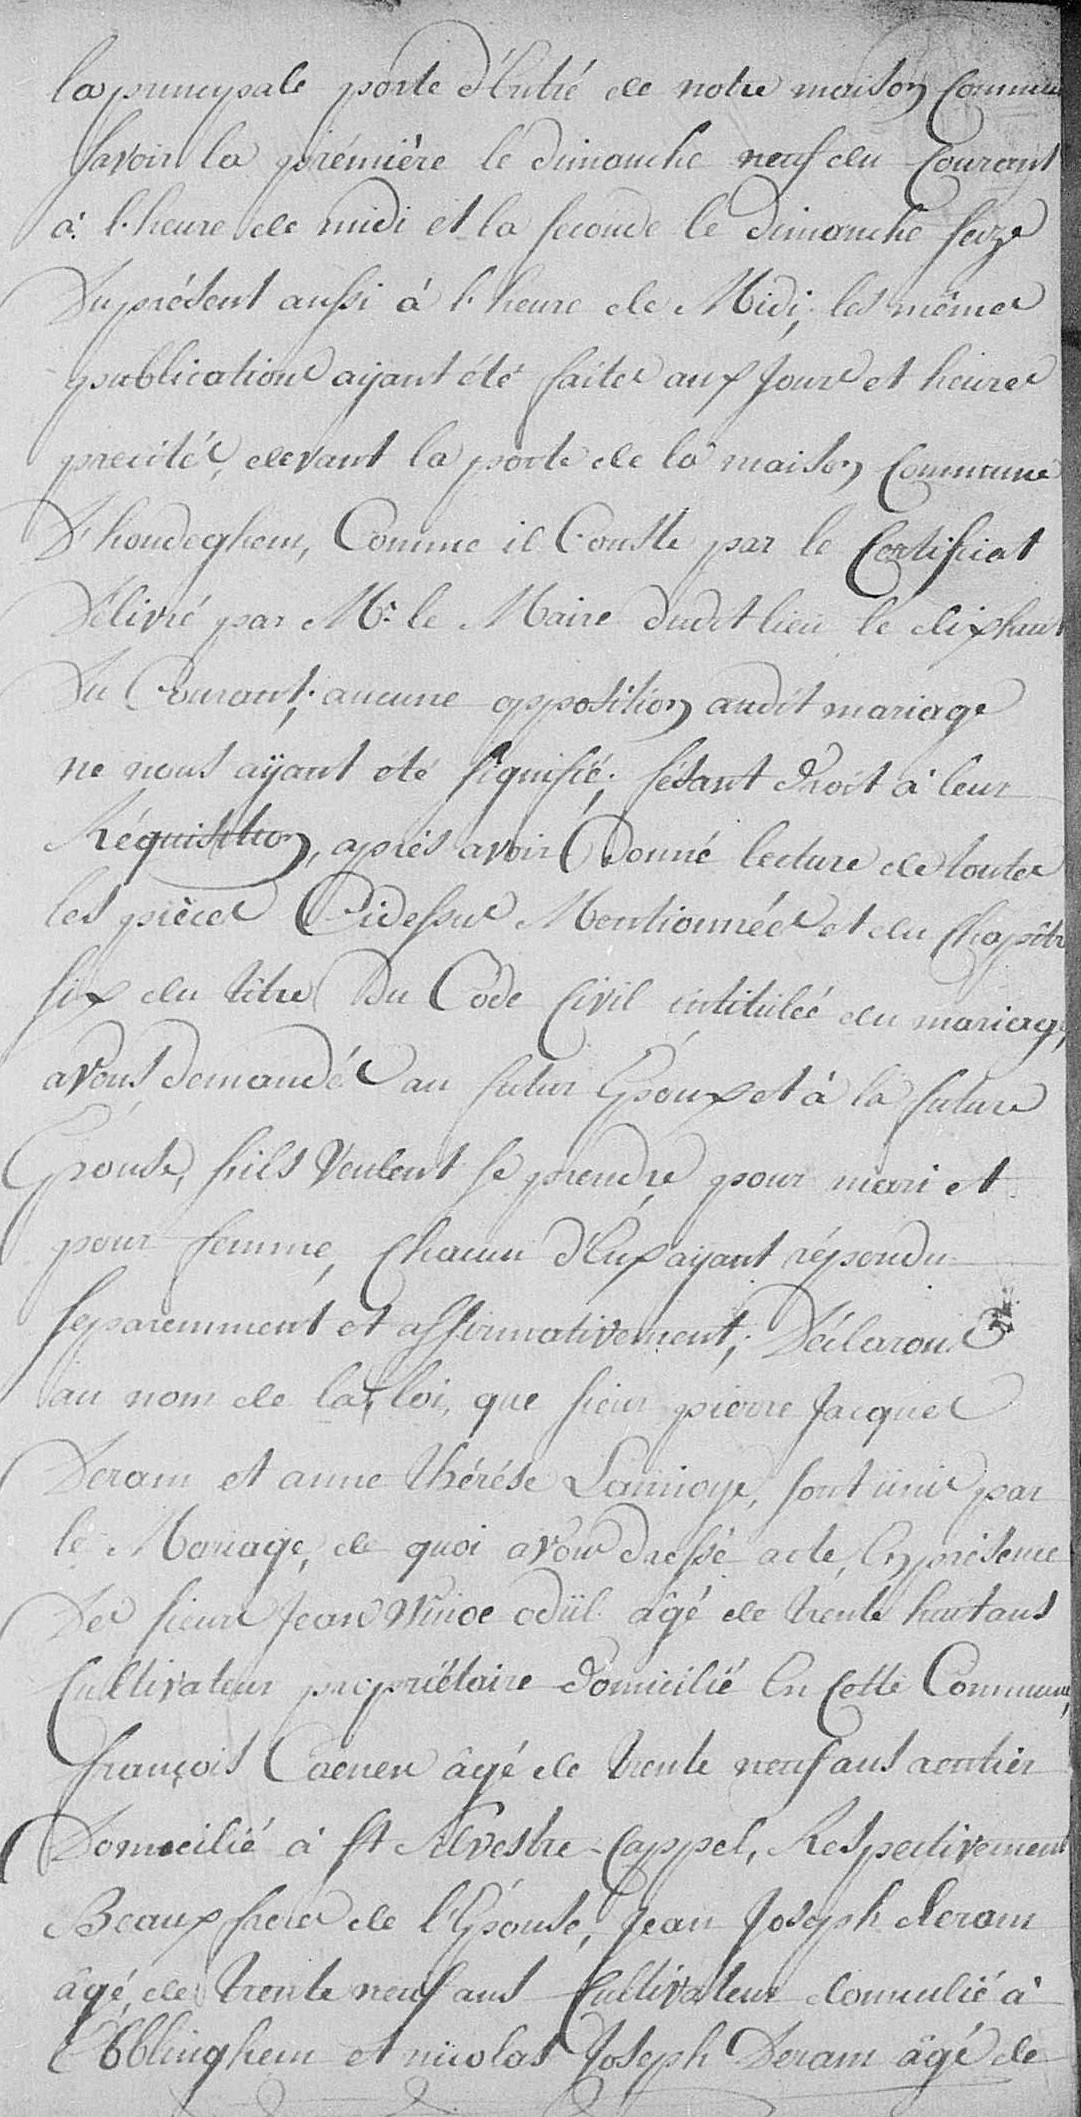 la principale porte d'Entré de notre maison Commune
savoir la prémière le dimanche neuf du Courant
à l'heure de midi et la seconde le dimanche seize
Du présent aussi à l'heure de Midi; les mêmes
publications aÿant été faites aux Jours et heures
precités, devant la porte de la maison Commune
D'hondeghem, Comme il Conste par le Certificat
Délivré par Mr. le Maire dudit lieu le dixhuit
Du Courant; aucune opposition audit mariage
ne nous aÿant été signifié; fésant droit à leur
Réquisition, après avoir Donné lecture de toutes
les pièces Cidessus Mentionnées et du Chapitre
six du titre Du Code Civil intitulée du mariage,
avons demandé au futur Epoux et à la future
Epouse, s'ils Veulent se prendre pour mari et
pour femme, Chacun d'Eux ayant répondu
separemment et affirmativement; Déclarons
au nom de la loi, que sieur pierre Jacques
Deram et anne thérése Lamioÿe, sont unis par
le Mariage, de quoi avons dressé acte, En présence
Des sieurs Jean Winoc odül âgé de trente huit ans
Cultivateur propriétaire domicilié En Cette Commune,
françois Coenen âgé de trente neuf ans rentier
Domicilié à St Silvestre-Cappel, Respectivement
Beaux frères de l'Epouse, Jean Joseph deram
âgé de trente neuf ans Cultivateur domicilié à
Ebblinghem et nicolas Joseph Deram âgé de